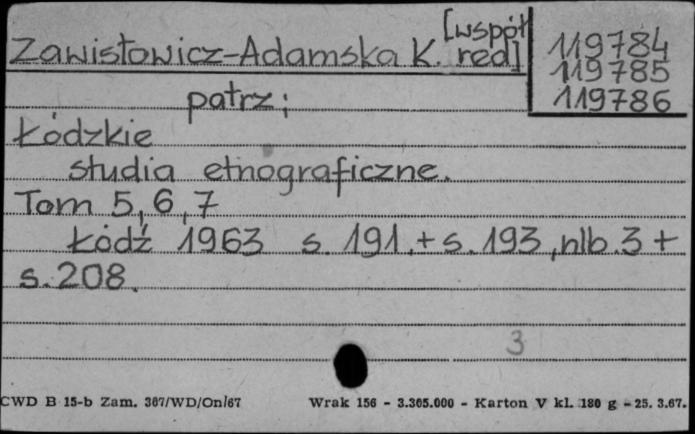 Zawistowicz-Adamska K. [współ red]
119784
119785
119786
patrz:
Łódzkie
studia etnograficzne.
Tom 5, 6, 7
Łódź 1963 s. 191. + s. 193, nlb. 3 +
s. 208.
3
CWD B 15-b Zam. 367/WD/On/67 Wrak 156 - 3.365.000 - Karton V kl. 180 g - 25. 3.67.